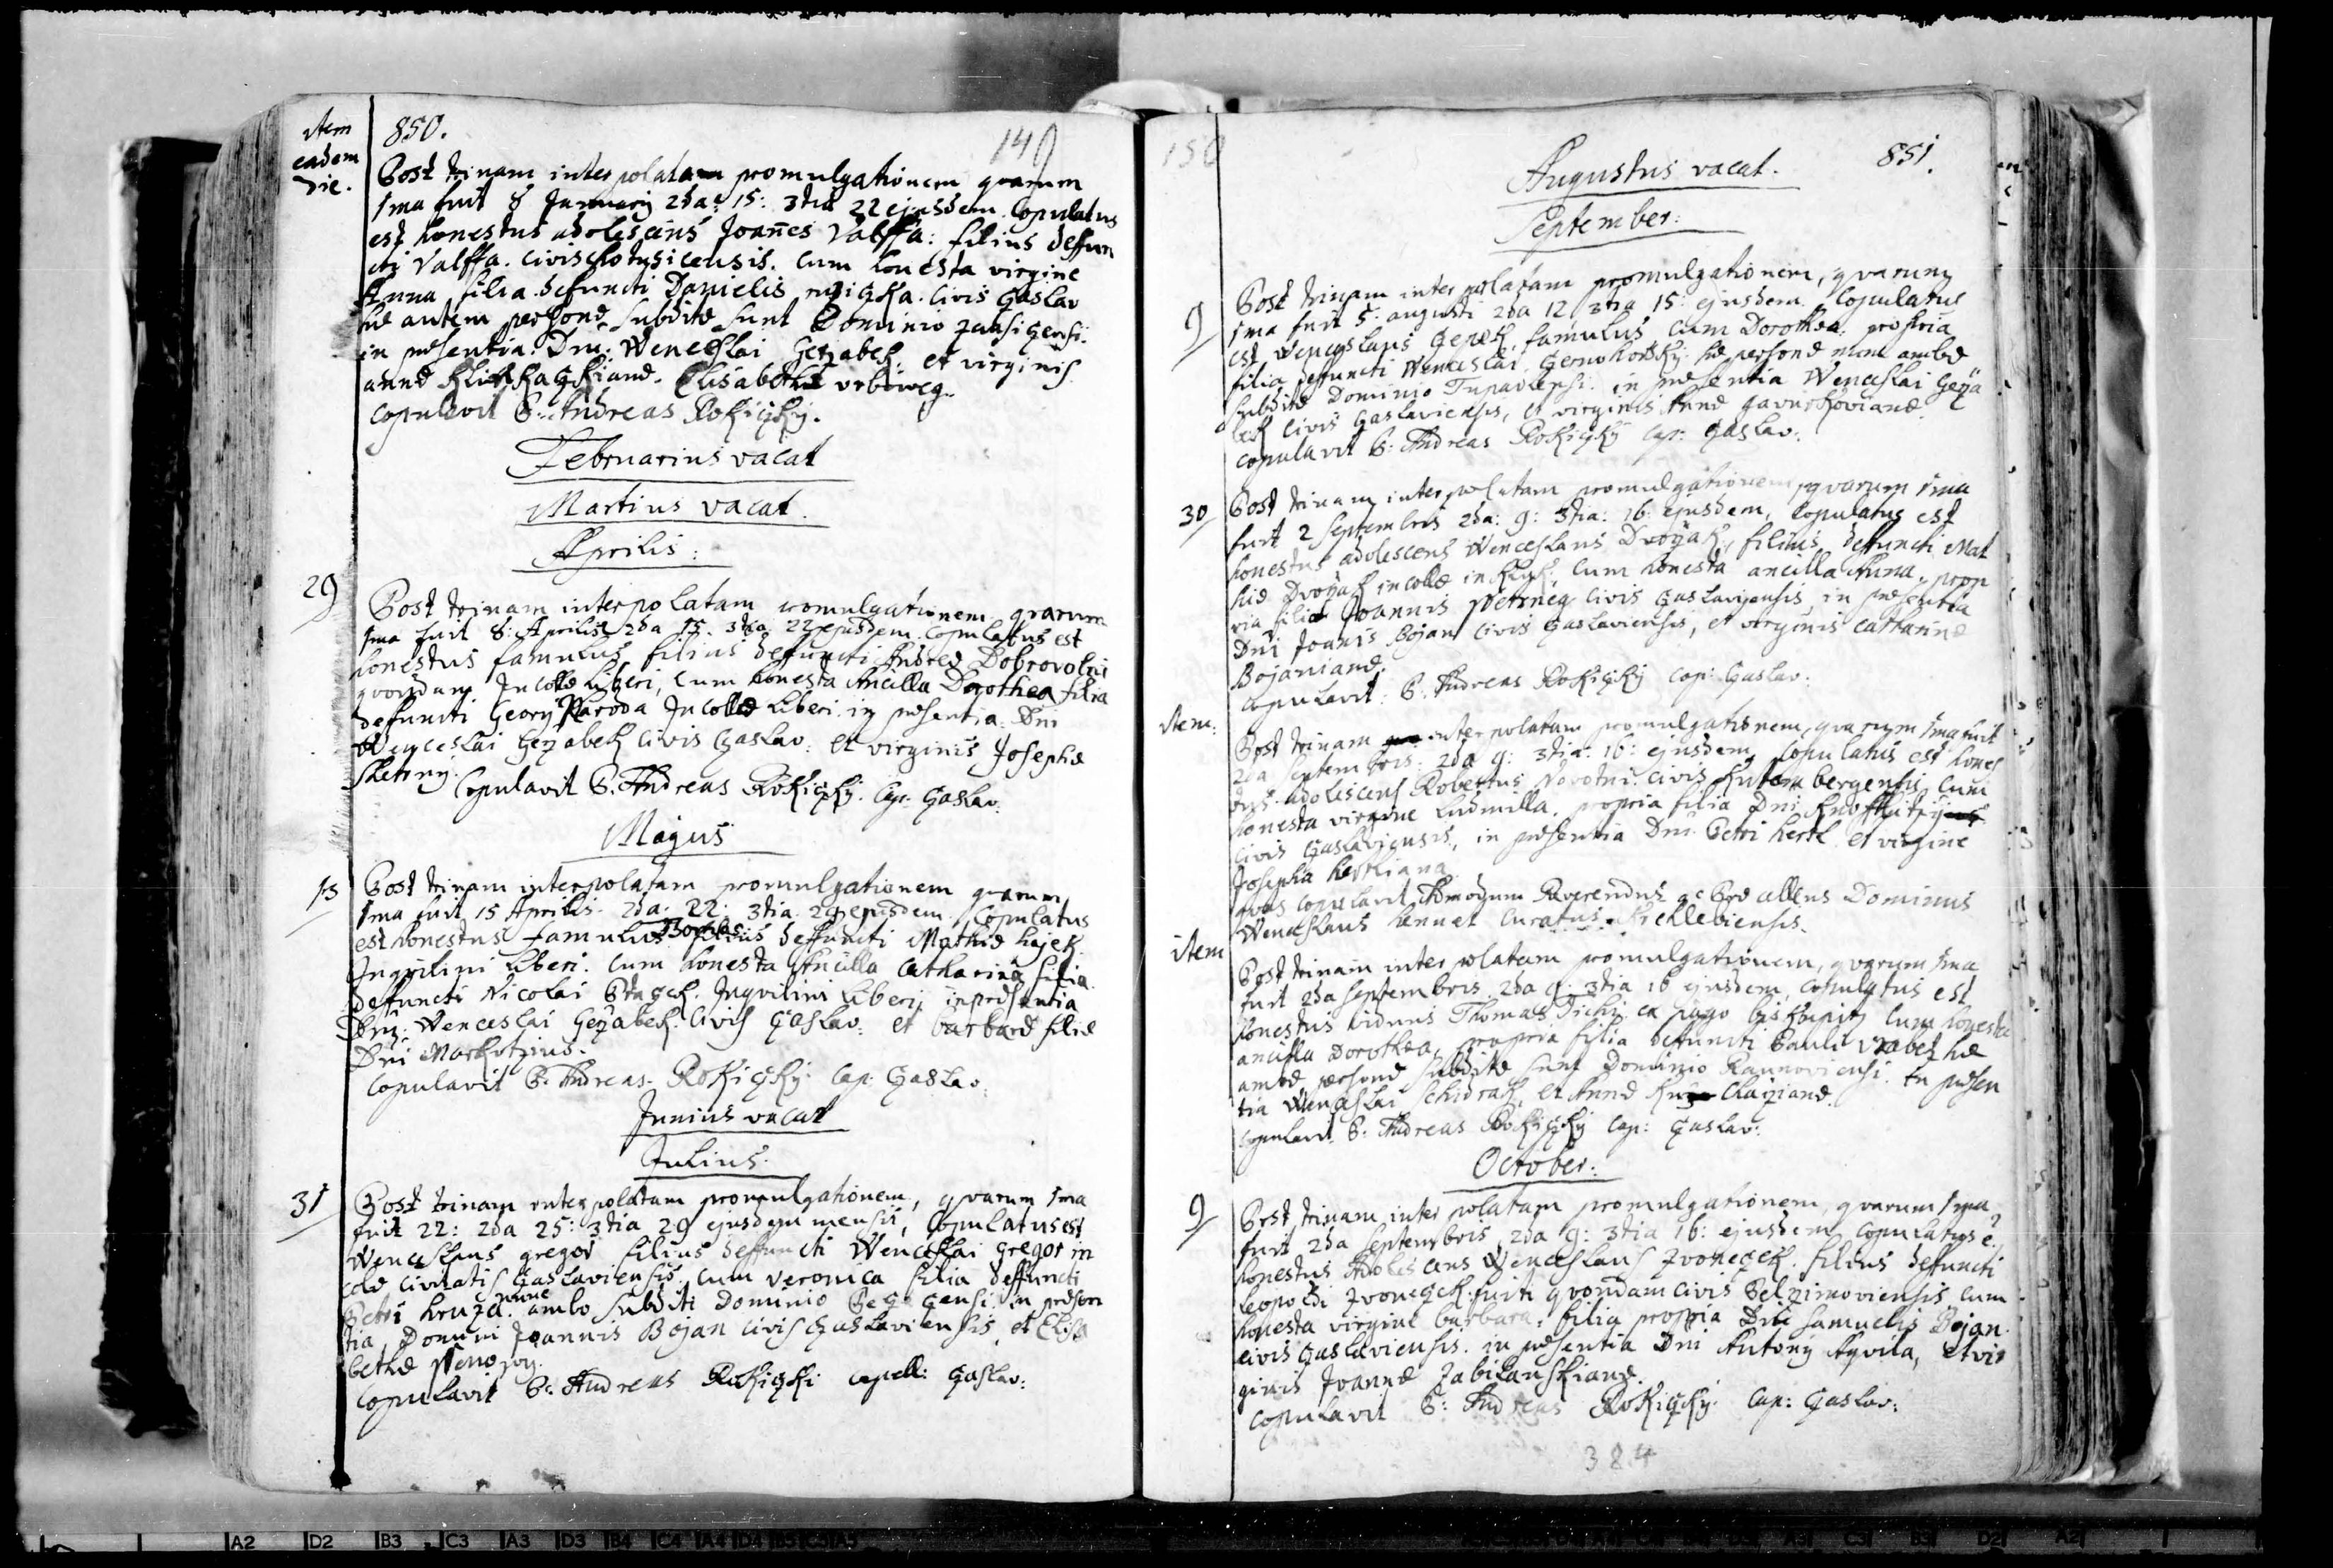 Item
eadem
die.
850.
149
Post trinam interpolatam promulgationem qvarum
1ma fuit 8 January 2da: 15: 3tia 22 ejusdem. Copulatus
est honestus adolescens Joañes Valffa: filius deffun
cti Valffa. Civis Chotusicensis. Cum honesta virgine
Anna filia defuncti Danielis civis Gaslav
hæ autem personæ subditæ sunt Dominio
in præsentia: Dni: Wenceslai Gezabek. et virginis
annæ Elisabethæ
copulavit P. Andreas Rokiczky.
Februarius vacat
Martius vacat.
Aprilis:
29
Post trinam interpolatam promulgationem qvarum
1ma fuit 8: Aprilis 2da 15. 3tia 22 ejusdem. Copulatus est
honestus famulus filius defuncti Andreæ Dobrovolni
qvondam Incolæ liberi, cum honesta Ancilla Dorothea filia
defuncti Georÿ Paroda Incolæ liberi in præsentia Dni
Wenceslai Gezabek Civis Gaslav: et virginis Josephæ
Copulavit P. Andreas Rokiczky. Cap: Gaslav:
Majus
13
Post trinam interpolatam promulgationem qvarum
1ma fuit 15 Aprilis. 2da: 22: 3tia. 29 ejusdem. Copulatus
est honestus Famulus filius deffuncti Mathiæ hajek
Inqvilini liberi. Cum honesta Ancilla Catharina filia
deffuncti Nicolai Ptaczk. Inqvilini liberi, in præsentia
Dni: Wenceslai Gezabek. Civis Gaslav: et barbaræ filiæ
Dni
Copulavit P. Andreas. Rokiczky. Cap: Gaslav:
Junius vacat
Julius.
31
Post trinam interpolatam promulgationem, qvarum 1ma
fuit 22: 2da 25: 3tia 29 ejusdem mensis, Copulatus est
Wenceslaus gregor filius deffuncti Wenceslai gregor in
colæ Civitatis Gaslaviensis. Cum Veronica filia deffuncti
Petri hruza. nunc ambo subditi Dominio in præsen
tia Domini Joannis Bojan Civis Gaslaviensis, et Elisa
bethæ
Copulavit P: Andreas Rokiczki Capell: Gaslav:
150
851.
Augustus vacat.
September:
9
Post trinam interpolatam promulgationem, qvarum
1ma fuit 5: augusti 2da 12 3tia 15: ejusdem. Copulatus
est Wenceslaus famulus cum Dorothea. propria
filia deffuncti Wenceslai hæ personæ nunc ambæ
subditæ Dominio in præsentia Wenceslai Geza
bek Civis Gaslaviensis, et virginis Annæ
copulavit P: Andreas Rokiczkÿ Cap: Gaslav:
30
Post trinam interpolatam promulgationem, qvarum 1ma
fuit 2 Septembris 2da: 9: 3tia: 16: ejusdem, Copulatus est
honestus adolescens Wenceslaus Dvorzak, filius deffuncti Mat
hiæ Dvorzak incolæ in Cum honesta ancilla Anna. prop
ria filia Joannis civis Gaslaviensis, in præsentia
Dni Joanis Bojan Civis Gaslaviensis, et virginis Catharinæ
Bojanianæ.
copulavit: P. Andreas Rokiczky Cap: Gaslav:
item:
Post trinam interpolatam promulgationem, qvarum 1ma fuit
2da Septembris: 2da 9: 3tia: 16: ejusdem, Copulatus est hones
tus adolescens Robertus Novotni. Civis Kuttembergensis, Cum
honesta virgine Ludmilla. propria filia Dni
Civis Gaslaviensis, in præsentia Dni. Petri hertl et virgine
Josepha hertliana.
qvos Copulavit Admodum Reverendus ac Præcellens Dominus
Wenceslaus Curatus
item
Post trinam interpolatam promulgationem, qvarum 1ma
fuit 2da Septembris 2da 9: 3tia 16 ejusdem, Copulatus est
honestus viduus Thomas Tichi. ex pago Cum honesta
ancilla Dorothea, propria filia deffuncti Pauli Vrabetz hæ
ambæ personæ subditæ sunt Dominio In præsen
tia Wenceslai et Annæ
copulavit P. Andreas Rokiczky Cap: Gaslav:
October:
9
Post trinam interpolatam promulgationem, qvarum 1ma
fuit 2da Septembris, 2da 9: 3tia 16: ejusdem, Copulatus e.
honestus Adolescens Wenceslaus Zvoneczek. filius deffuncti
leopoldi Zvoneczek fuiti qvondam civis Pelzimoviensis Cum
honesta virgine barbara. filia propria Dni Samuelis Bojan.
civis Gaslaviensis. in præsentia Dni Antonÿ Aqvila, et vir
ginis Joannæ
copulavit P: Andreas Rokiczky. Cap: Gaslav:
384
A2 D2 B3 C3 A3 D3 B4 C4 A4 D4 B5 C5 A5